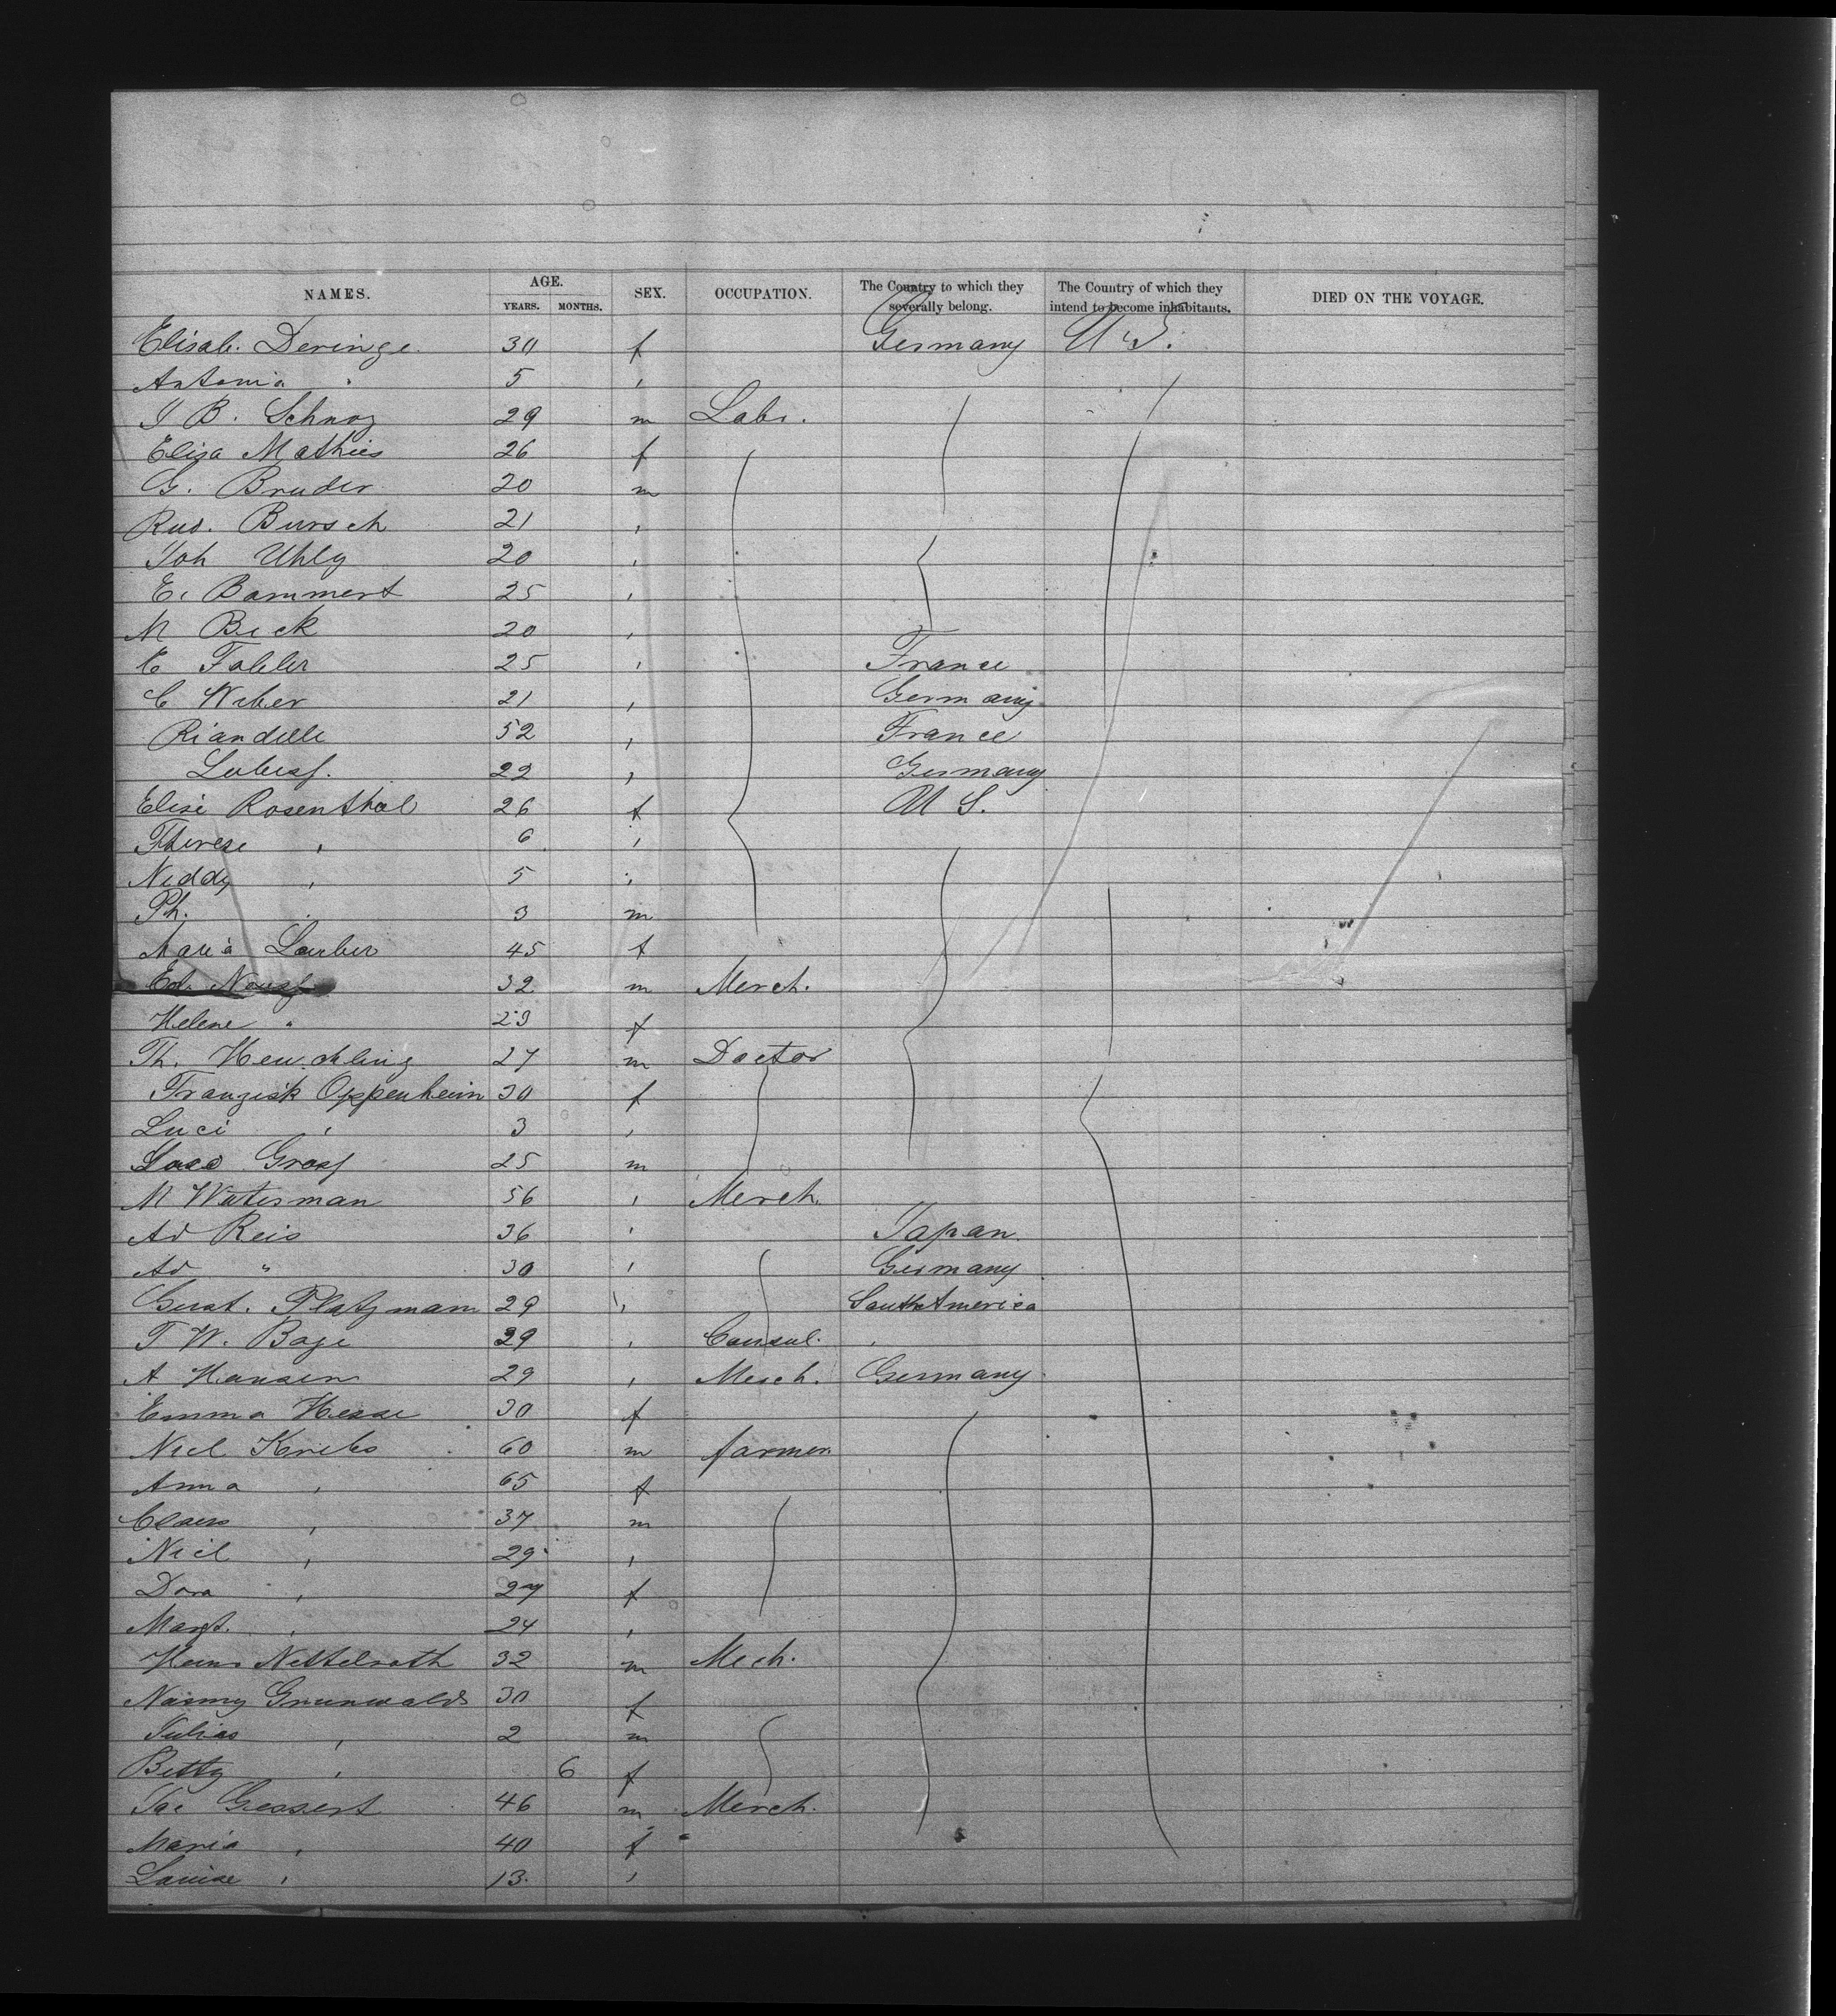 NAMES. AGE. YEARS. MONTHS. SEX. OCCUPATION. The Country to which they severally belong. The Country of which they intend to become inhabitants. DIED ON THE VOYAGE.
Elisab. Deringe. 30 f Germany U S.
Antonia " 5 "
J B. Schnoz 29 m Labr.
Elisa Mathies 26 f
G. Bruder 20 m
Rud. Bursch 21 "
Joh Uhly 20 "
E. Bammert 25 "
M Beck 20 "
E Fabler 25 " France
C Weber 21 " Germany
Riandelle 52 " France
22 " Germany
Elise Rosenthal 26 f U S.
Therese " 6 "
Neddy " 5 "
Ph. " 3 m
Maria Lauber 45 f
Ed. 32 m Merch.
Helene " 23 f
Th. Heuchling 27 m Doctor
Franzisk Oppenheim 30 f
Luci " 3 "
Gross 25 m
M Waterman 56 " Merch.
Ad Reis 36 " Japan.
Ad " 30 " Germany
Gust. Platzmann 29 " South America
F W. Boge 29 " Consul. "
A Hansen 29 " Merch. Germany
Emma Hesse 30 f
Nicl Krebs 60 m farmer
Anna " 65 f
Claus " 37 m
Nicl " 29 "
Dora " 27 f
Margt. " 24 "
Herm Nettelroth 32 m Mech.
Nanny Grunwald 30 f
Julius " 2 m
Betty " 6 f
Jac Gessert 46 m Merch.
Maria " 40 f
Louise " 13. "